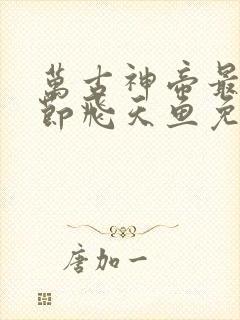 萬古神帝最
節飛天魚免
唐加一